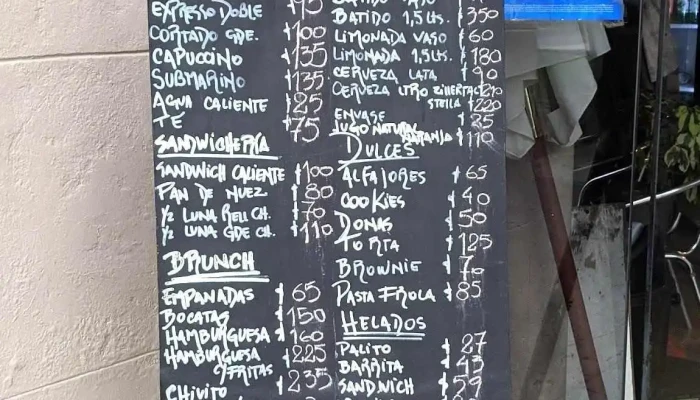 EXPRESSO DOBLE
CORTADO GDE. $100
CAPUCCINO $135
SUBMARINO $135
AGUA CALIENTE $25
TE $75
SANDWICHERIA
SANDWICH CALIENTE $100
PAN DE NUEZ $80
1/2 LUNA RELL CH. $70
1/2 LUNA GDE CH. $110
BRUNCH
EMPANADAS $65
BOCATAS $150
HAMBURGUESA $160
HAMBURGUESA $225
C/FRITAS
CHIVITO $235
BATIDO 1,5 LTS. $350
LIMONADA VASO $60
LIMONADA 1,5 LTS. $180
CERVEZA LATA $90
CERVEZA LITRO ZILLERTAL $210
STELLA $220
ENVASE $25
JUGO NATURAL NARANJA $110
DULCES
ALFAJORES $65
COOKIES $40
DONAS $50
TORTA $125
BROWNIE $70
PASTA FROLA $85
HELADOS
PALITO $27
BARRITA $43
SANDWICH $59